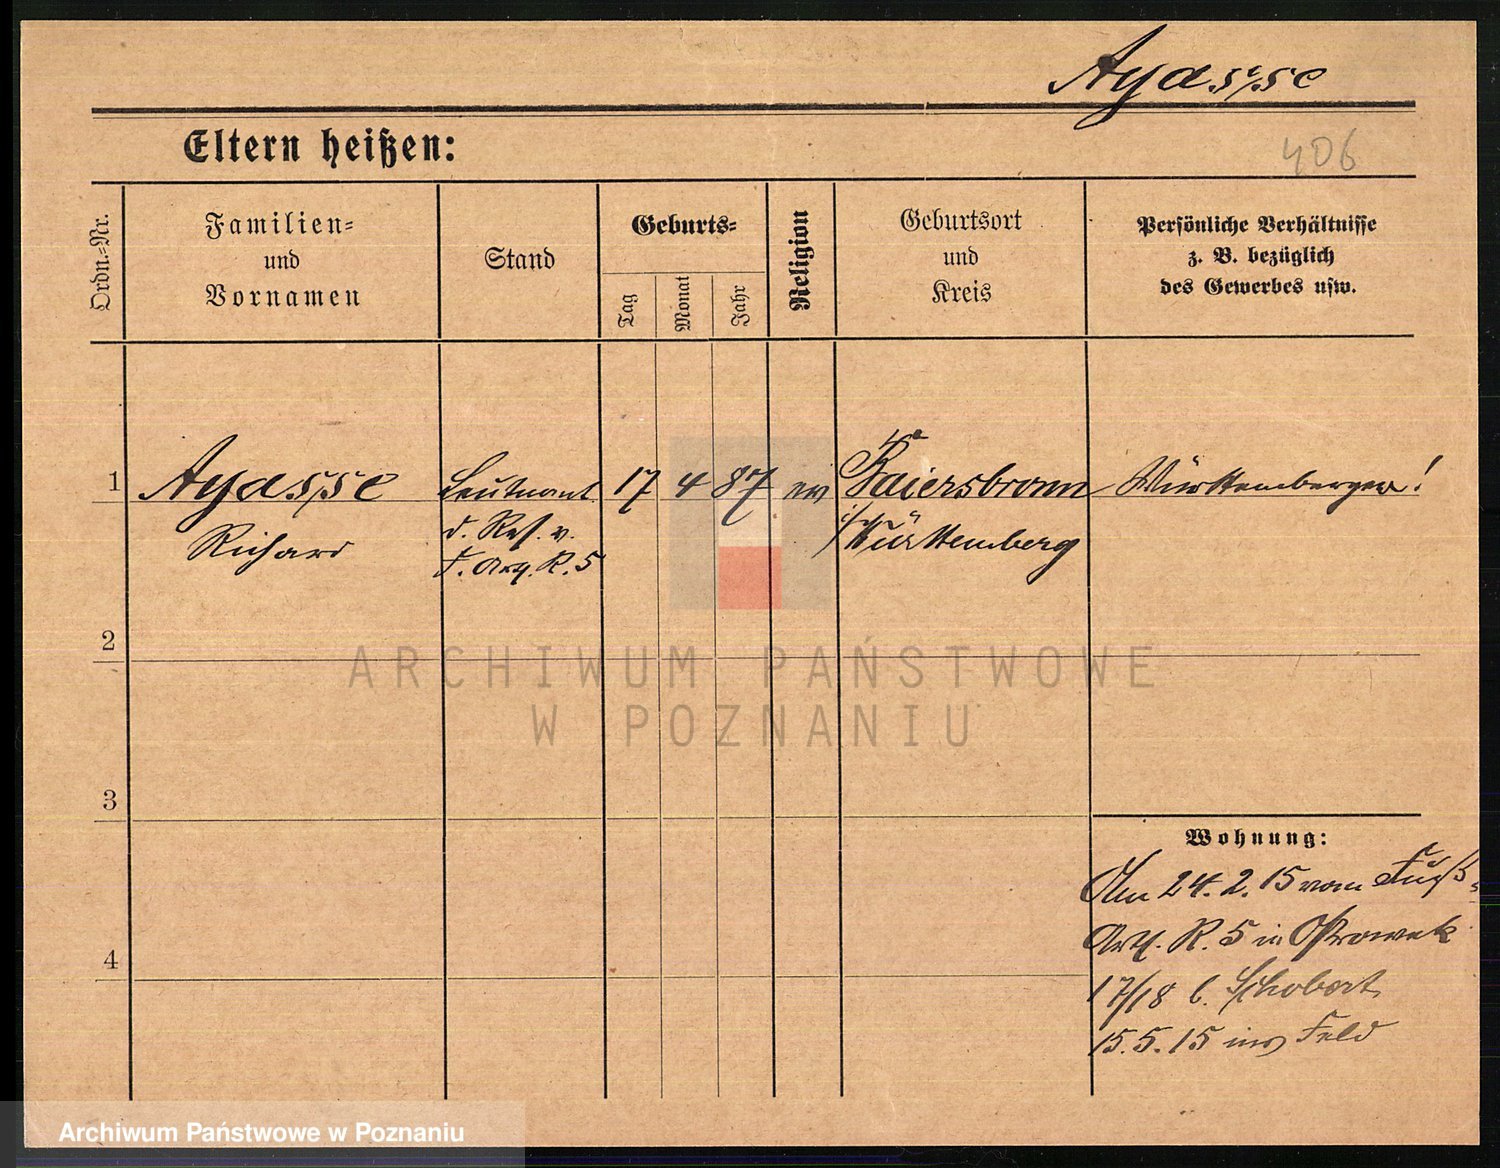 Ayasse
Eltern heißen:
406
Ordn.-Nr.
Familien-
und
Vornamen
Stand
Geburts-
Tag
Monat
Jahr
Religion
Geburtsort
und
Kreis
Persönliche Verhältnisse
z. B. bezüglich
des Gewerbes usw.
1
Ayasse
Richard
Leutnant
d. Res. v.
F. Art. R. 5
17
4
87
ev
Baiersbronn
i/Württemberg
Württemberger!
2
3
4
Wohnung:
Am 24.2.15 vom Fuß-
Art. R. 5 in Ostrowek
17/18 b. Schobert
15.5.15 ins Feld
ARCHIWUM PAŃSTWOWE
W POZNANIU
Archiwum Państwowe w Poznaniu